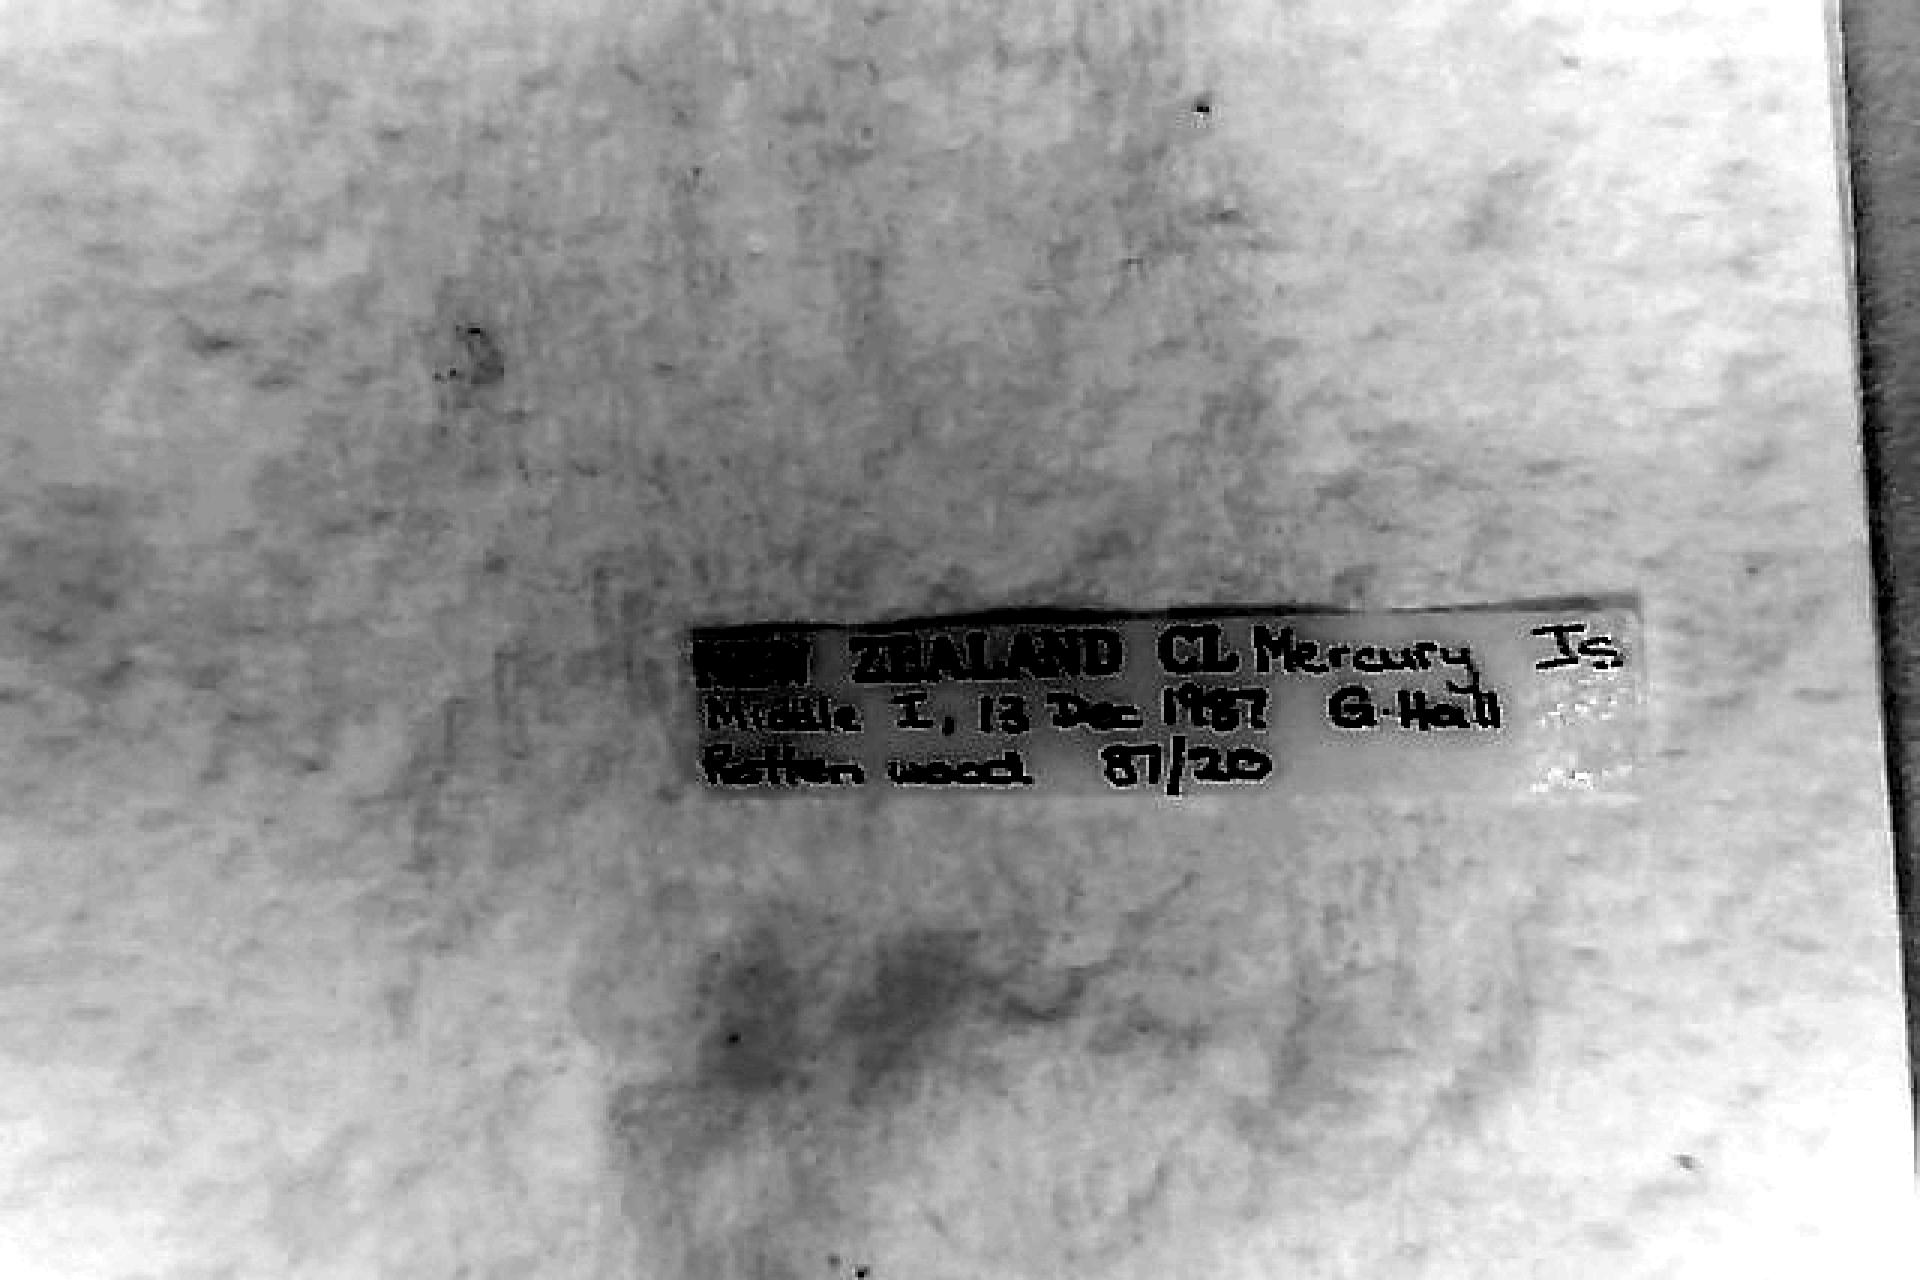 NEW ZEALAND CL Mercury Is
Middle I, 13 Dec 1987 G. Hall
Rotten wood 87/20